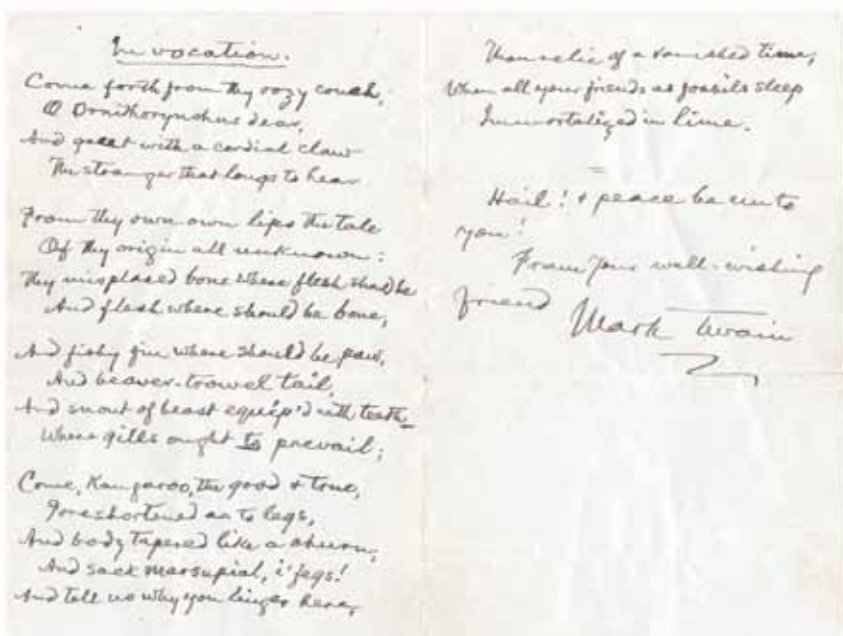 Invocation.
Come forth from thy oozy couch,
O Ornithorynchus dear,
And greet with a cordial claw
The stranger that longs to hear
From thy own own lips the tale
Of thy origin all unknown:
Thy misplaced bone where flesh should be
And flesh where should be bone;
And fishy fin where should be paw,
And beaver-trowel tail,
And snout of beast equip'd with teeth
Where gills ought to prevail;
Come, Kangaroo, the good & true,
Foreshortened as to legs,
And body tapered like a churn,
And sack marsupial, i' fegs!
And tell us why you linger here,
Thou relic of a vanished time,
When all your friends as fossils sleep
Immortalized in lime.
Hail! & peace be unto
you!
From your well-wishing
friend
Mark Twain